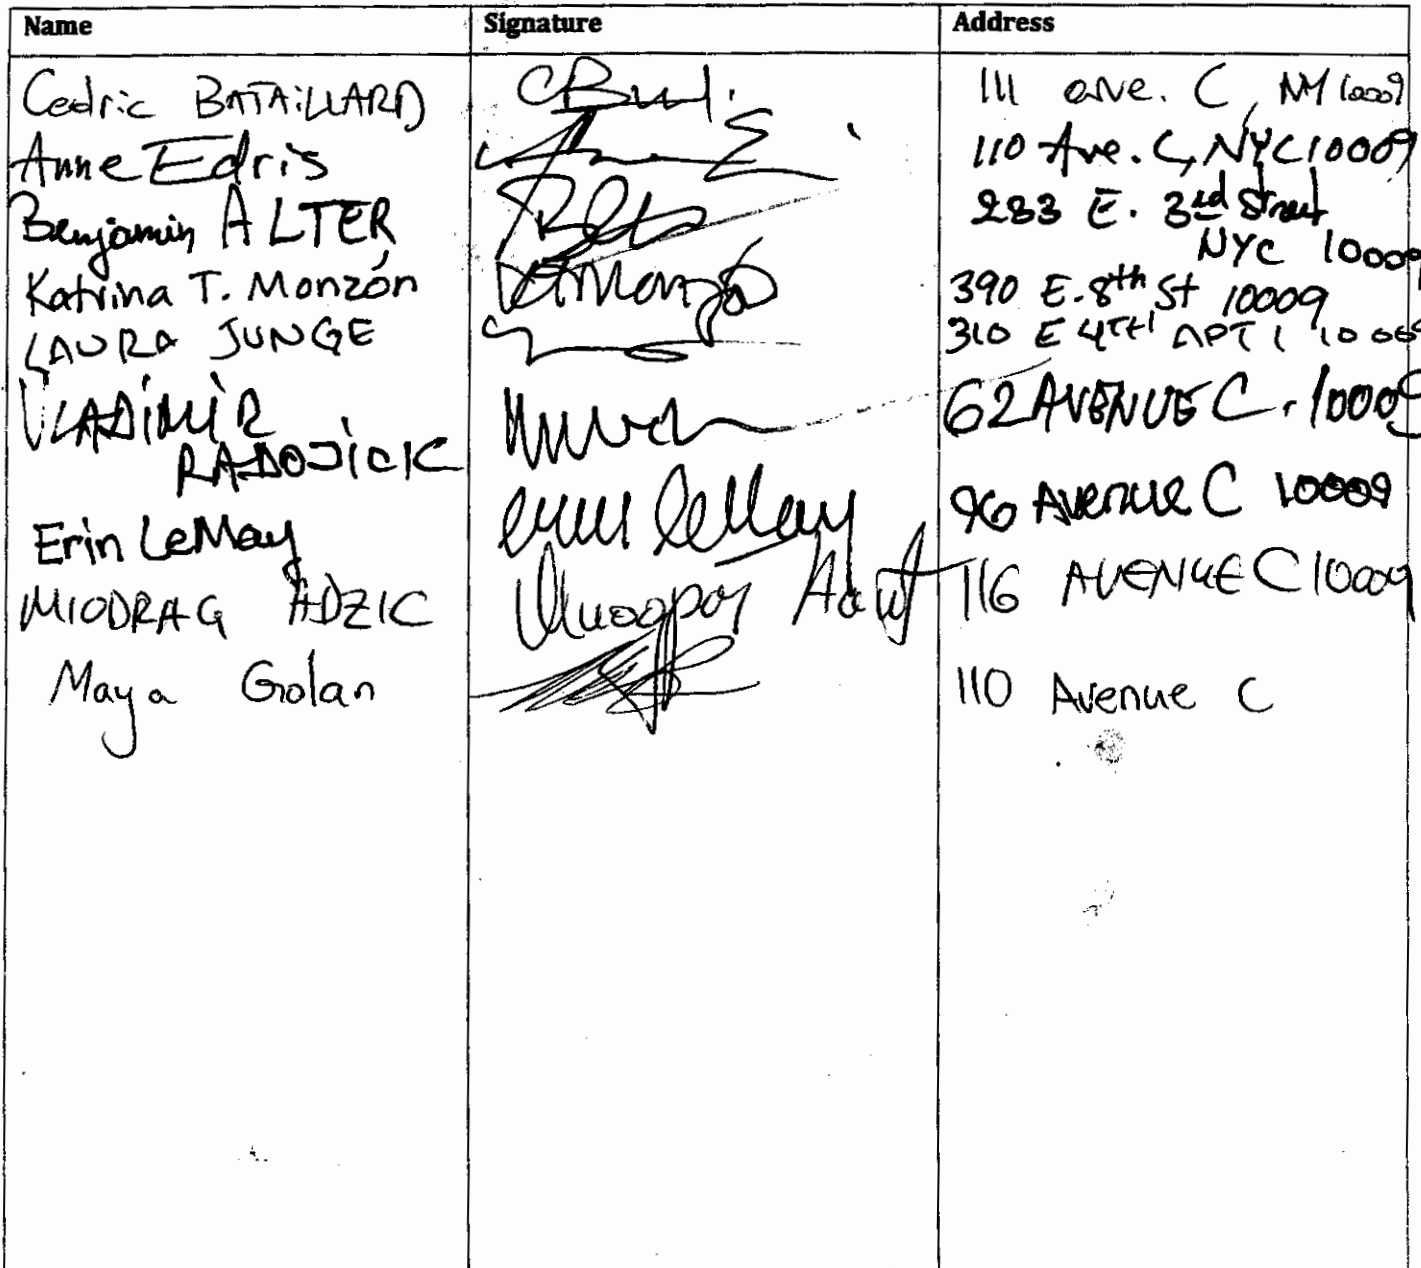 Name Signature Address
Cedric BATAILLARD 111 ave. C, NY 10009
Anne Edris 110 Ave. C, NYC 10009
Benjamin ALTER 283 E. 3rd Street
NYC 10009
Katrina T. Monzón 390 E. 8th St 10009
LAURA JUNGE 310 E 4TH APT 1 10009
VLADIMIR 62 AVENUE C. 10009
RADOJICIC
Erin LeMay erin leMay 96 Avenue C 10009
MIODRAG ADZIC 116 AVENUE C 10009
Maya Golan 110 Avenue C